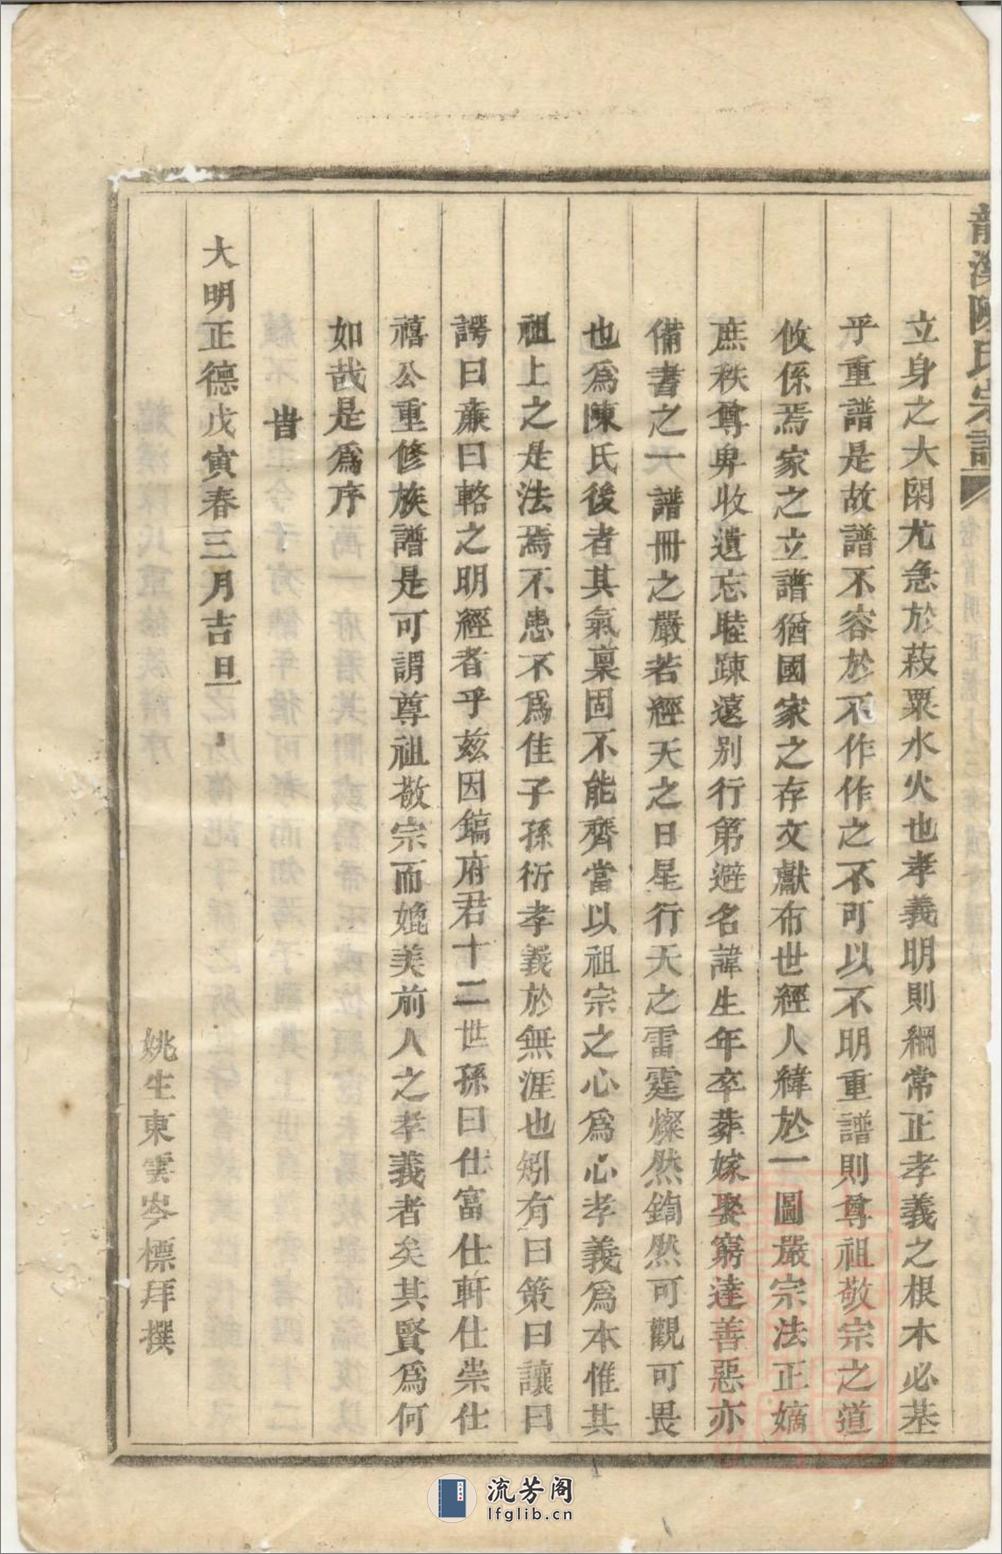 龍溪陳氏宗譜
立身之大閑尤急於菽粟水火也孝義明則綱常正孝義之根木必基
乎重譜是故譜不容於不作作之不可以不明重譜則尊祖敬宗之道
攸係焉家之立譜猶國家之存文獻布世經人緯於一圖嚴宗法正嫡
庶秩尊卑收遺忘睦踈遠別行第避名諱生年卒葬嫁娶窮達善惡亦
備書之一譜冊之嚴若經天之日星行天之雷霆燦然鍧然可觀可畏
也爲陳氏後者其氣稟固不能齊當以祖宗之心爲心孝義爲本惟其
祖上之是法焉不患不爲佳子孫衍孝義於無涯也矧有曰策曰讓曰
諤曰㢘曰輅之明經者乎兹因鎬府君十二世孫曰仕富仕軒仕崇仕
禧公重修族譜是可謂尊祖敬宗而媲美前人之孝義者矣其賢爲何
如哉是爲序
旹
大明正德戊寅春三月吉旦
姚生東雲岑標拜撰
流芳阁
lfglib.cn